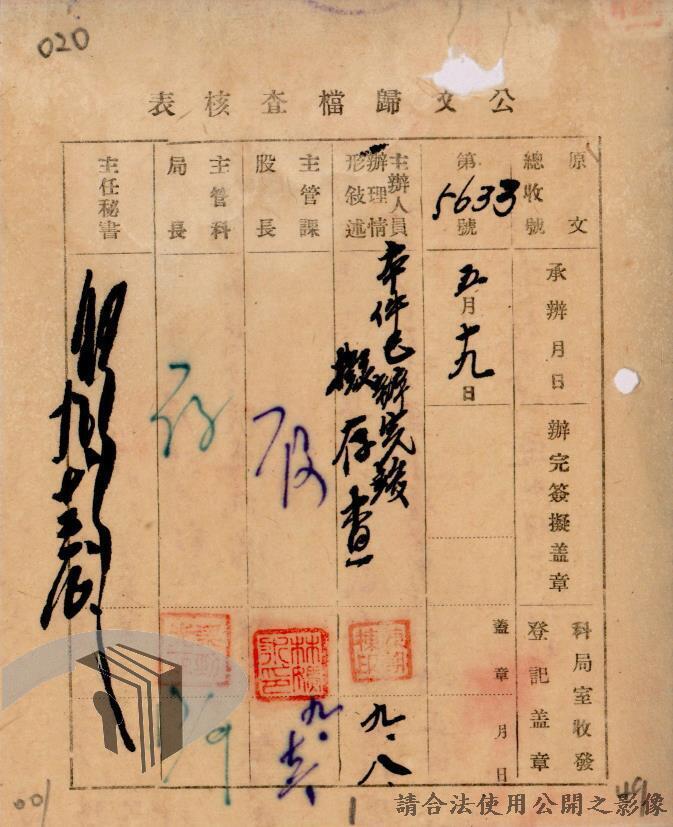 020
公文歸檔查核表
原文總收號
承辦月日
辦完簽擬蓋章
科局室收發登記蓋章
第5633號
五月十九日
蓋章 月 日
主辦人員辦理情形敍述
本件已辦完竣
擬存查
九.八.
主管課股長
九.
主管科局長
主任秘書
001
1
49
請合法使用公開之影像